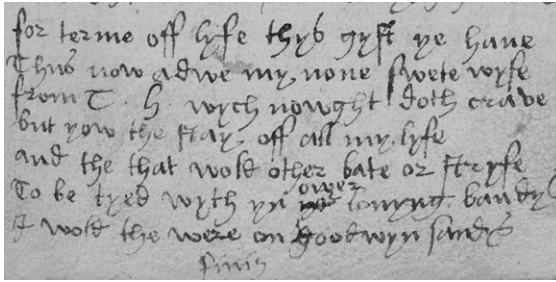 for terme off lyfe thys gyft ye haue
Thus now adwe my none swete wyfe
from T. H. wych nowght doth crave
but yow the stay off all my lyfe
and the that wold other bate or stryfe
To be tyed wyth yn ower louyng bandys
I wold the were on goodwyn sandys
finis